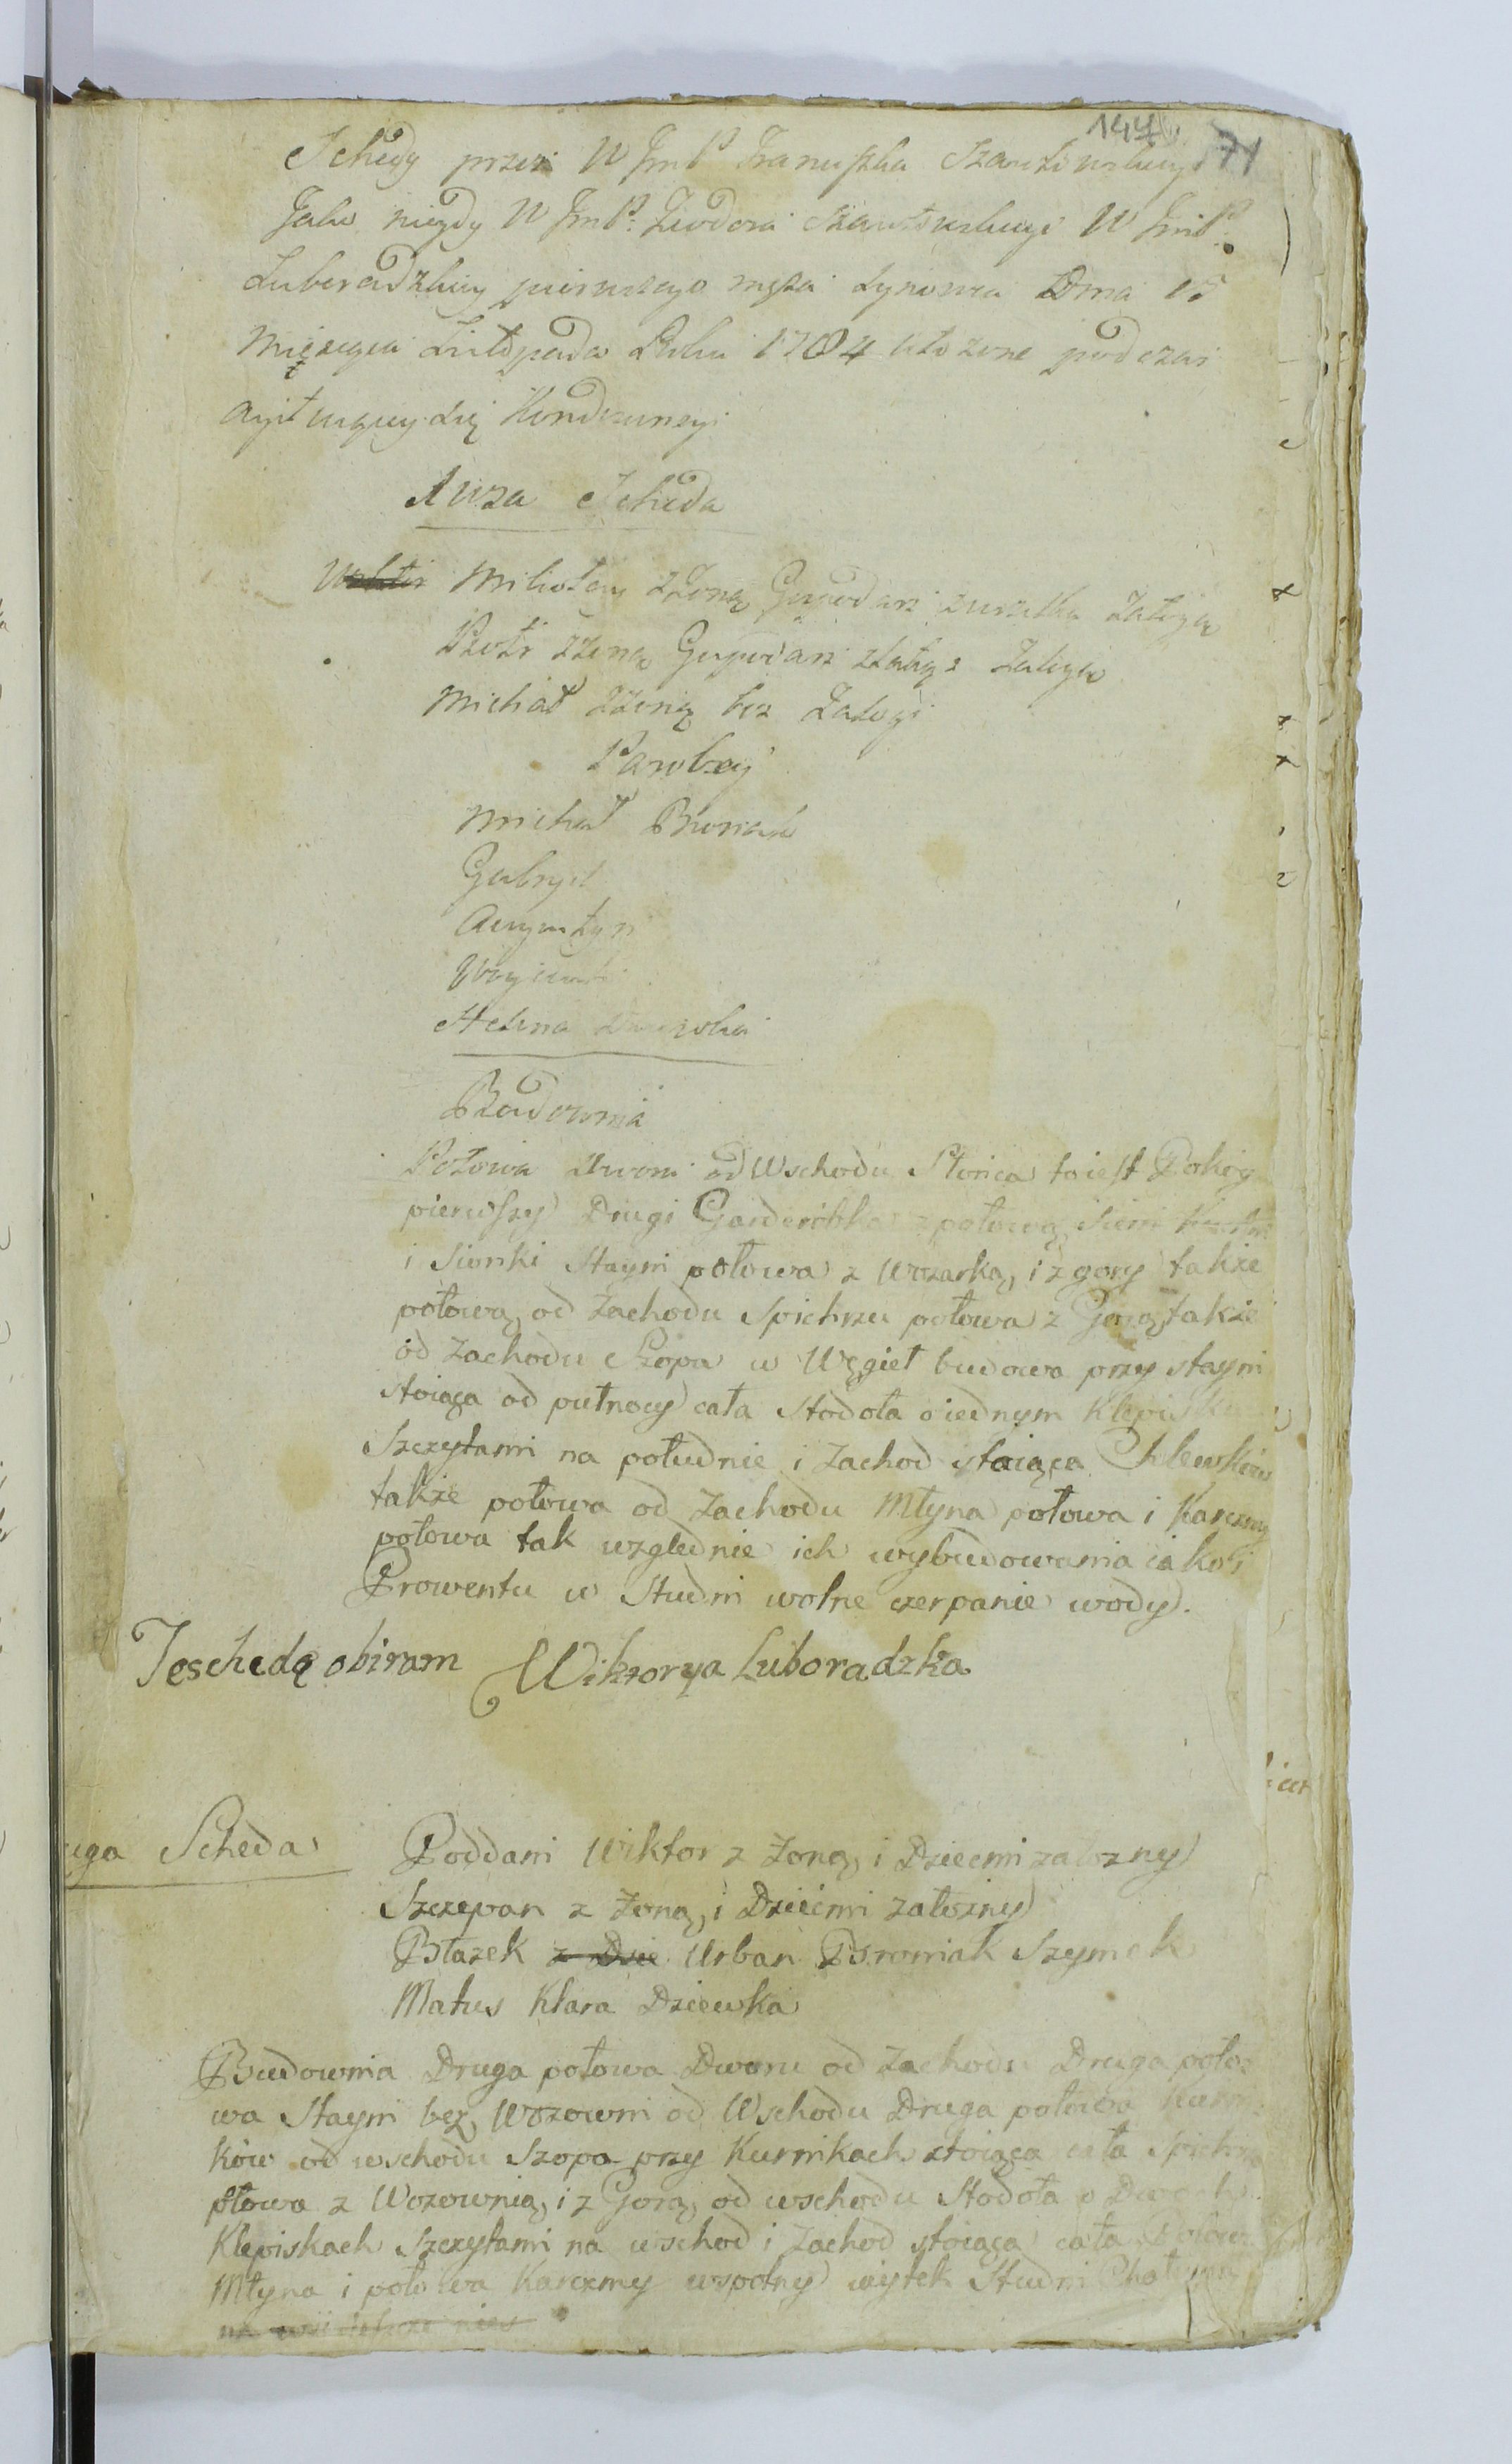 147 71
Schedy przez W JmP Franciszka Szawłowskiego
Jako niegdy W JmP: Teodora Szawłowskiego W JmP:
Luboradzkiey pierwszego męża Synowca Dnia 15
Miesięca Listopada Roku 1784 ułożone podczas
agituiącey się Kondescensyi
1wsza Scheda
Mikołay z Żoną Gospodarz z wszelką Załogą
Piotr z Żoną Gospodarz z całą Załogą
Michał z Żoną bez Załogi
Parobcy
Michał
Gabryel
Augustyn
Woyciech
Helena Dziewka
Budownia
Połowa Dworu od Wschodu Słońca to iest Pokoy
pierwszy Drugi Garderobka z połową Sieni Kuchni
i Sionki Stayni połowa z Wozarką, i z gory także
połową, od Zachodu Spichrzu połowa z Gorą, także
od Zachodu Szopa w Węgieł budowa przy stayni
stoiąca od pułnocy cała Stodoła o iednym Klepisku
Szczytami na południe i Zachod stoiąca Chlewków
także połowa od Zachodu Młyna połowa i Karczmy
połowa tak względnie ich wybudowania iako i
Prowentu w Studni wolne czerpanie wody.
Te schedę obiram Wiktorya Luboradzka
uga Scheda
Poddani Wiktor z Żoną, i Dziećmi założny
Szczepan z Żoną, i Dziećmi założny
Błażek z Dzie Urban Broniak Szymek
Matus Klara Dziewka
Budownia Druga połowa Dworu od Zachodu Druga poło-
wa Stayni bez Wozowni od Wschodu Druga połowa Kurni-
ków od wschodu Szopa przy Kurnikach stoiąca cała Spichrza
płowa z Wozownią, i z Gorą, od wschodu Stodoła o Dwoch
Klepiskach Szczytami na wschod i Zachod stoiąca cała Połowa
Młyna i połowa Karczmy wspolny Studni